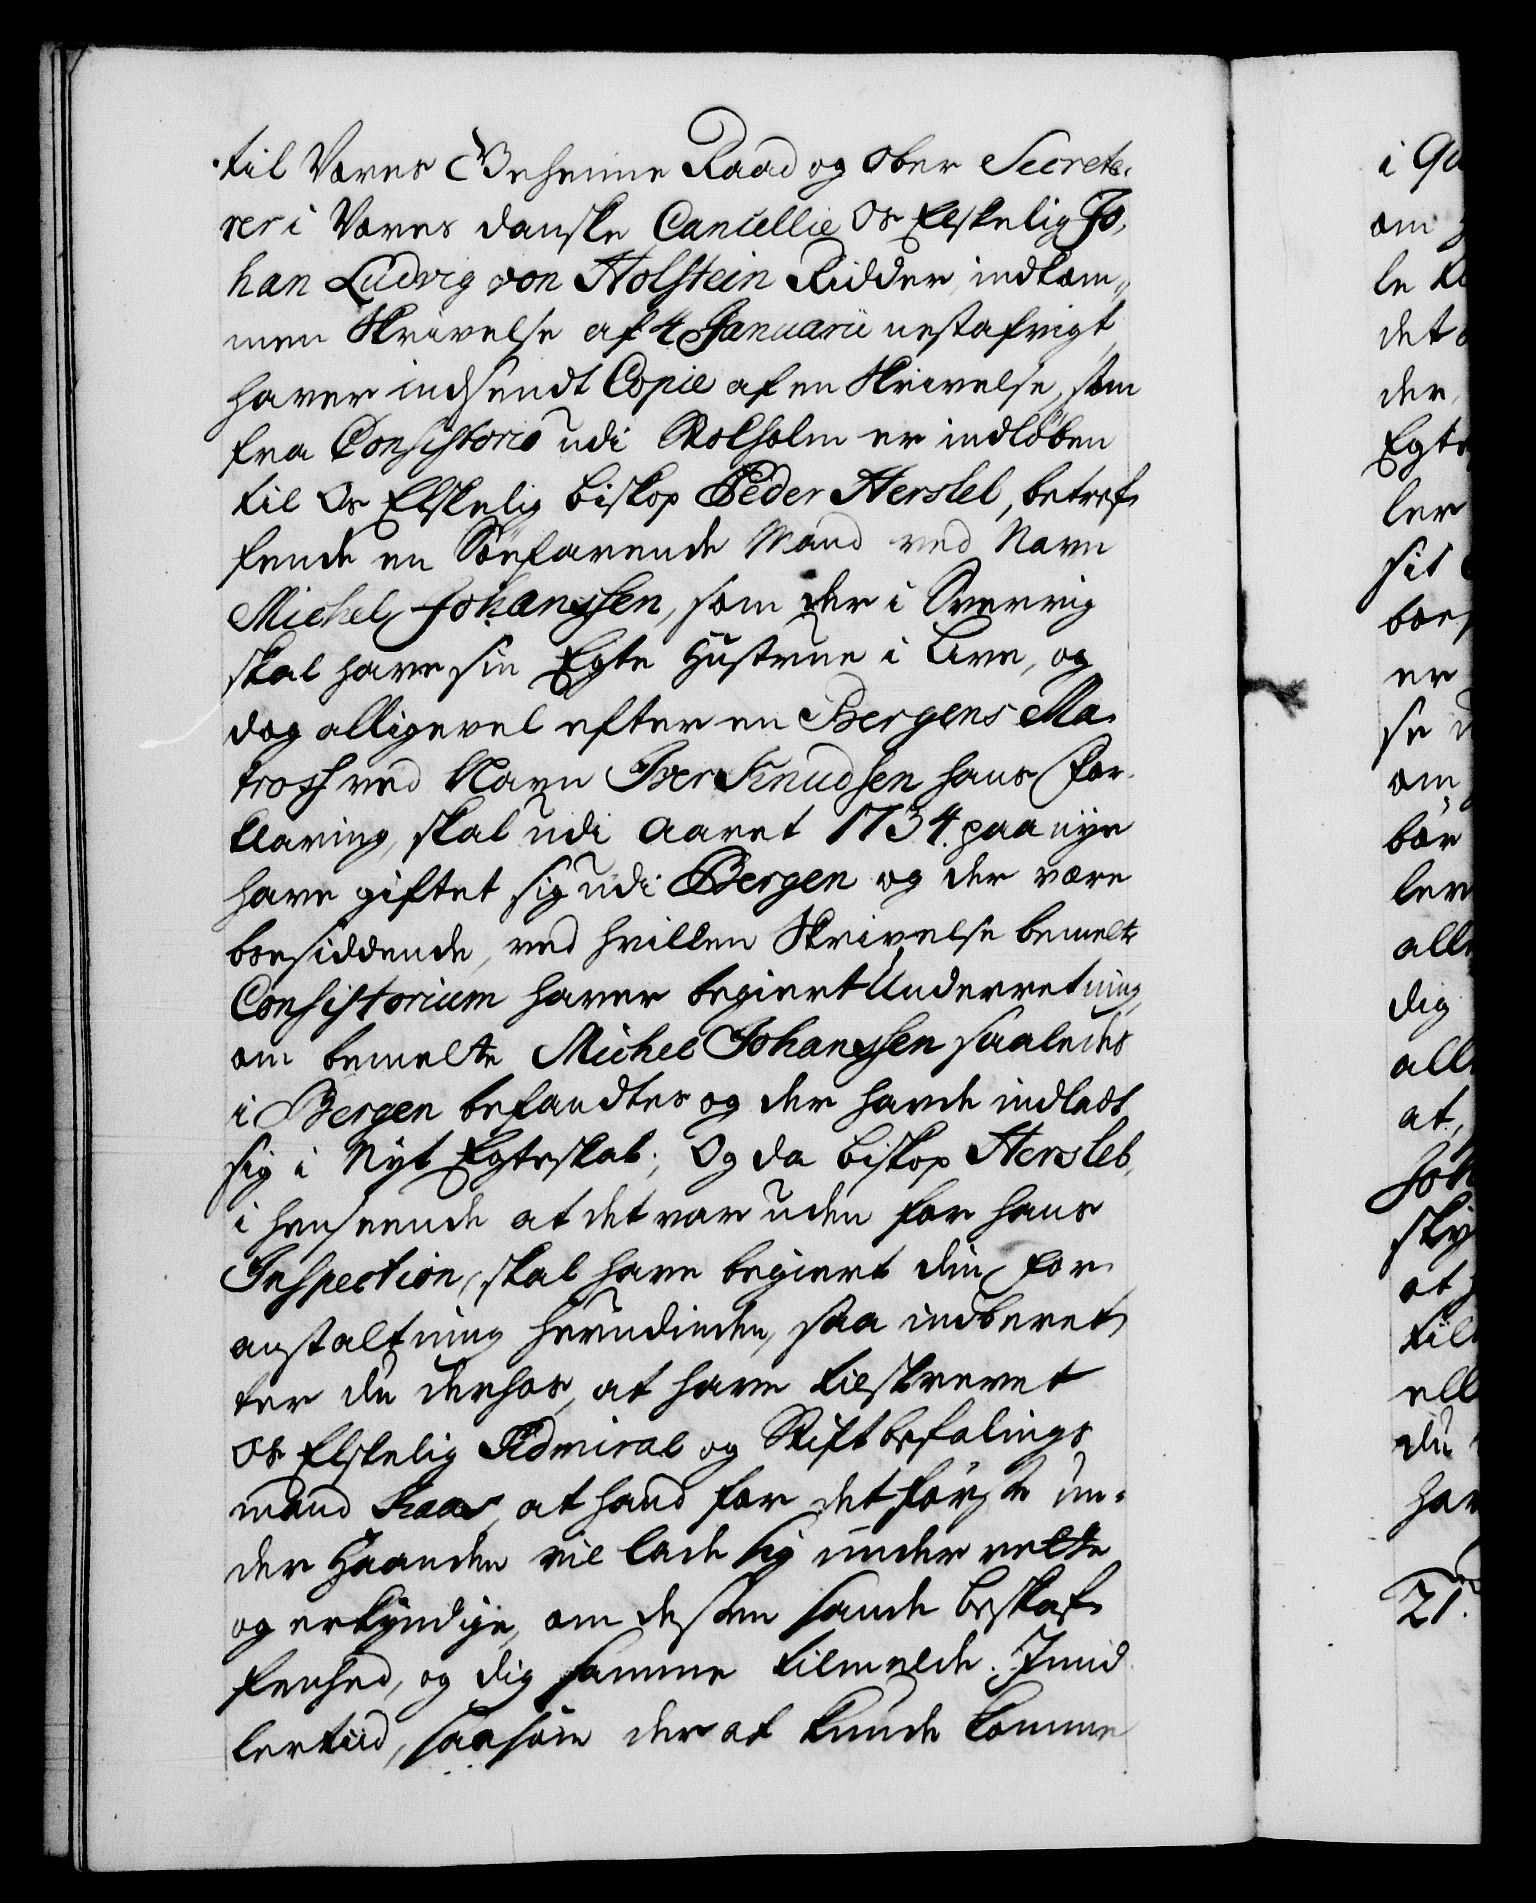 til Vores Geheime Raad og Ober Secrete-
rer i Vores danske Cancellie Os Elskelig Jo-
han Ludvig von Holstein Ridder, indkom-
men Skrivelse af 4 Januarii nestafvigt,
haver indsendt Copie af en Skrivelse, som
fra Consistorio udi Stokholm er indløben
til Os Elskelig Biskop Peder Hersleb, betref-
fende en Søefarende Mand ved Navn
Michel Johanssen, som der i Sverrig
skal have sin Egte Hustrue i Live, og
dog alligevel efter en Bergens Ma-
tross ved Navn Iver Knudsen hans For-
klaring, skal udi Aaret 1734. paa nye
have giftet sig udi Bergen og der være
boesiddende, ved hvilken Skrivelse bemelte
Consistorium haver begiert Underretning,
om bemelte Michel Johanssen saaledes
i Bergen befandtes og der havde indladt
sig i Nyt Egteskab; Og da Biskop Hersleb,
i henseende at det var uden for hans
Inspection, skal have begiert din For-
anstaltning herudinden, saa indberet-
ter du derhos, at have tilskrevet
Os Elskelig Admiral og Stiftbefalings
mand Kaas, at hand for det første un-
der Haanden vil lade sig underrette
og erkyndige, om dessen sande Beskaf-
fenhed, og dig samme tilmelde. Imid
lertiid, saasom der at kunde komme
i
om
le
det
der
Egt
ler
sit
boe
er
se
om
bør
ler
all
dig
all
at
Joh
sky
at
til
ell
du
hav
21.